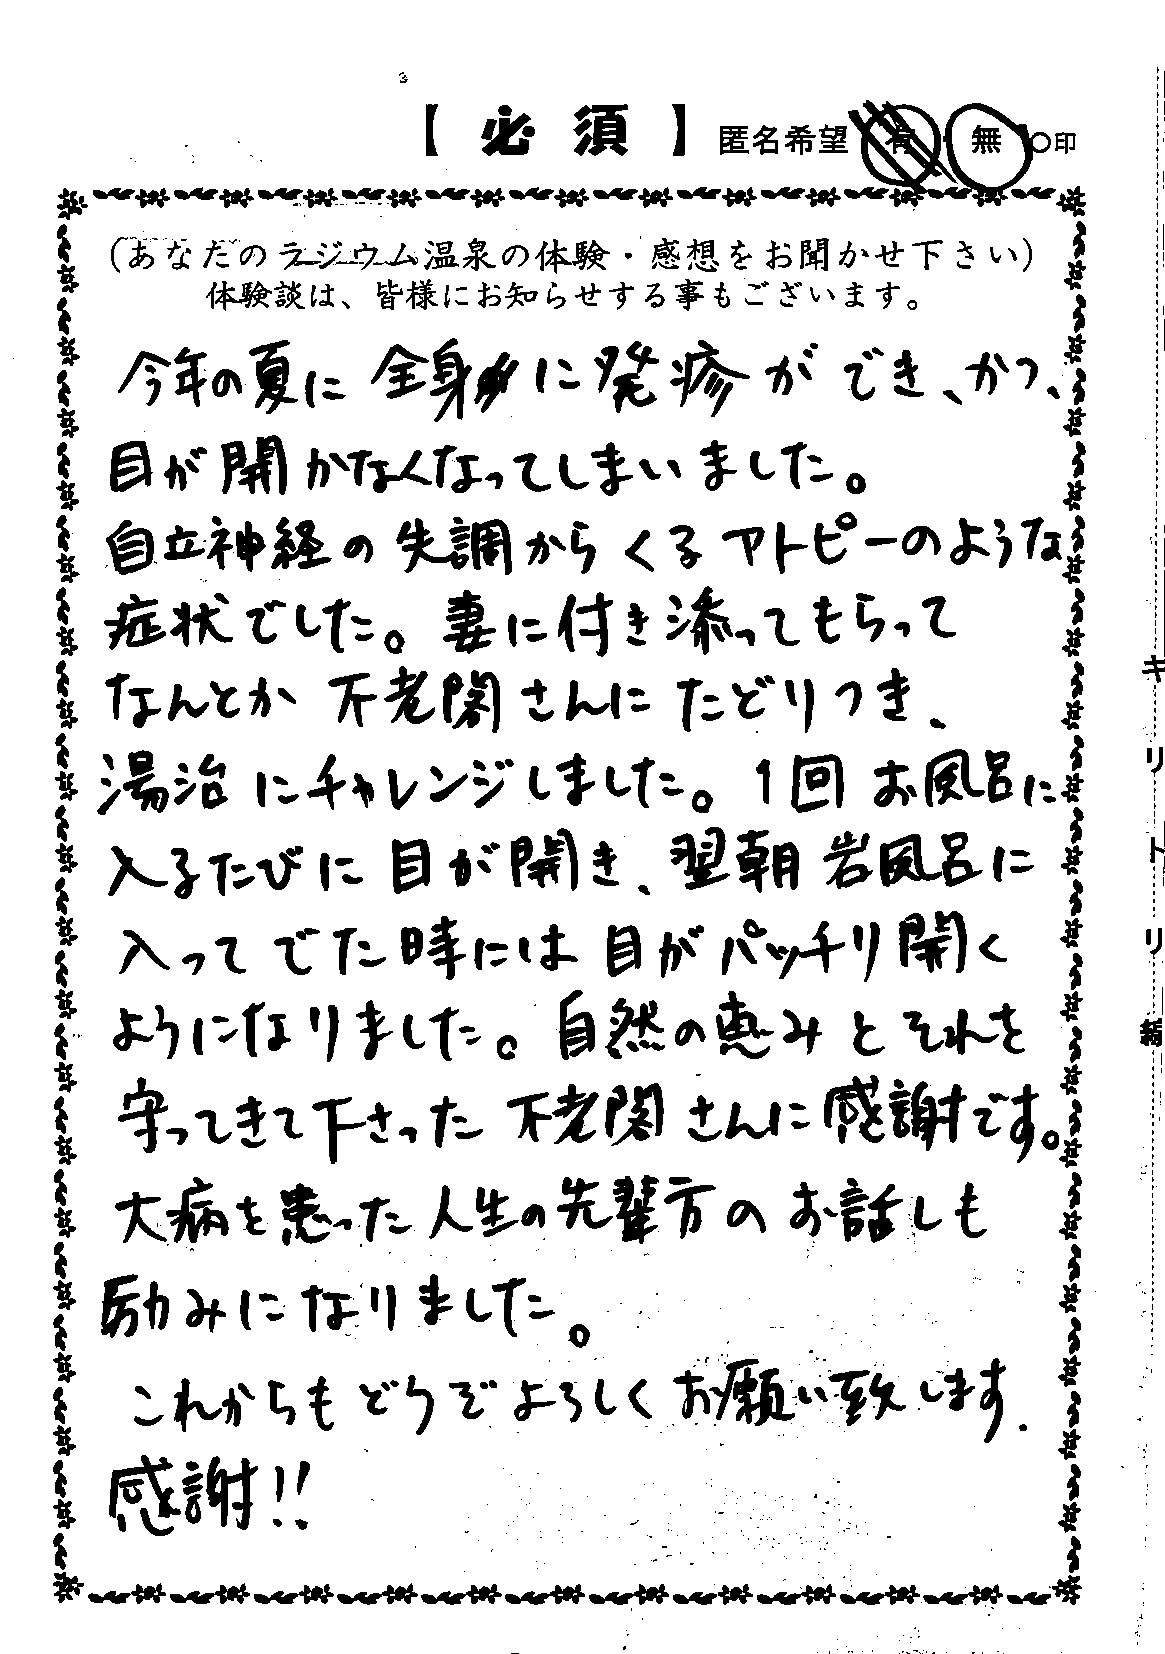 【必須】匿名希望 有・無 ○印
（あなたのラジウム温泉の体験・感想をお聞かせ下さい）
体験談は、皆様にお知らせする事もございます。
今年の夏に全身に発疹ができ、かつ、
目が開かなくなってしまいました。
自立神経の失調からくるアトピーのような
症状でした。妻に付き添ってもらって
なんとか不老閣さんにたどりつき、
湯治にチャレンジしました。1回お風呂に
入るたびに目が開き、翌朝岩風呂に
入ってでた時には目がパッチリ開く
ようになりました。自然の恵みとそれを
守ってきて下さった不老閣さんに感謝です。
大病を患った人生の先輩方のお話しも
励みになりました。
これからもどうぞよろしくお願い致します.
感謝!!
キリトリ線